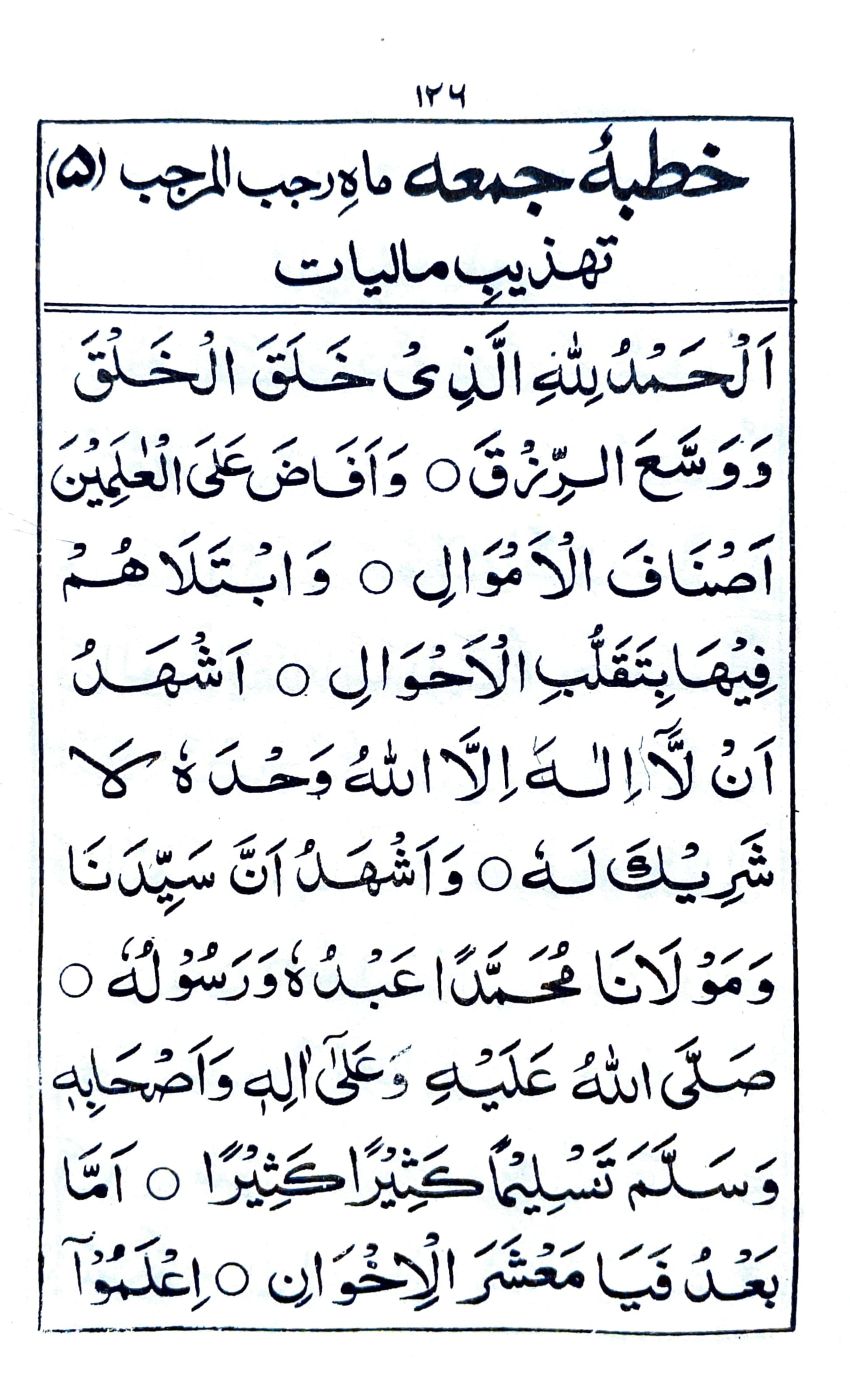 ۱۲۶
خطبۂ جمعہ ماہِ رجب المرجب (۵)
تہذیبِ مالیات
اَلْحَمْدُ لِلّٰهِ الَّذِیْ خَلَقَ الْخَلْقَ
وَوَسَّعَ الرِّزْقَ ○ وَاَفَاضَ عَلَی الْعٰلَمِیْنَ
اَصْنَافَ الْاَمْوَالِ ○ وَابْتَلَاهُمْ
فِیْهَا بِتَقَلُّبِ الْاَحْوَالِ ○ اَشْهَدُ
اَنْ لَّآ اِلٰهَ اِلَّا اللّٰهُ وَحْدَهٗ لَا
شَرِیْكَ لَهٗ ○ وَاَشْهَدُ اَنَّ سَیِّدَنَا
وَمَوْلَانَا مُحَمَّدًا عَبْدُهٗ وَرَسُوْلُهٗ ○
صَلَّی اللّٰهُ عَلَیْهِ وَعَلٰۤی اٰلِهٖ وَاَصْحَابِهٖ
وَسَلَّمَ تَسْلِیْمًا كَثِیْرًا كَثِیْرًا ○ اَمَّا
بَعْدُ فَیَا مَعْشَرَ الْاِخْوَانِ ○ اِعْلَمُوْآ